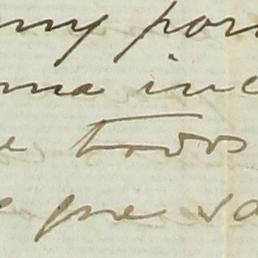 my por
ma inc
e todos
e pre sa